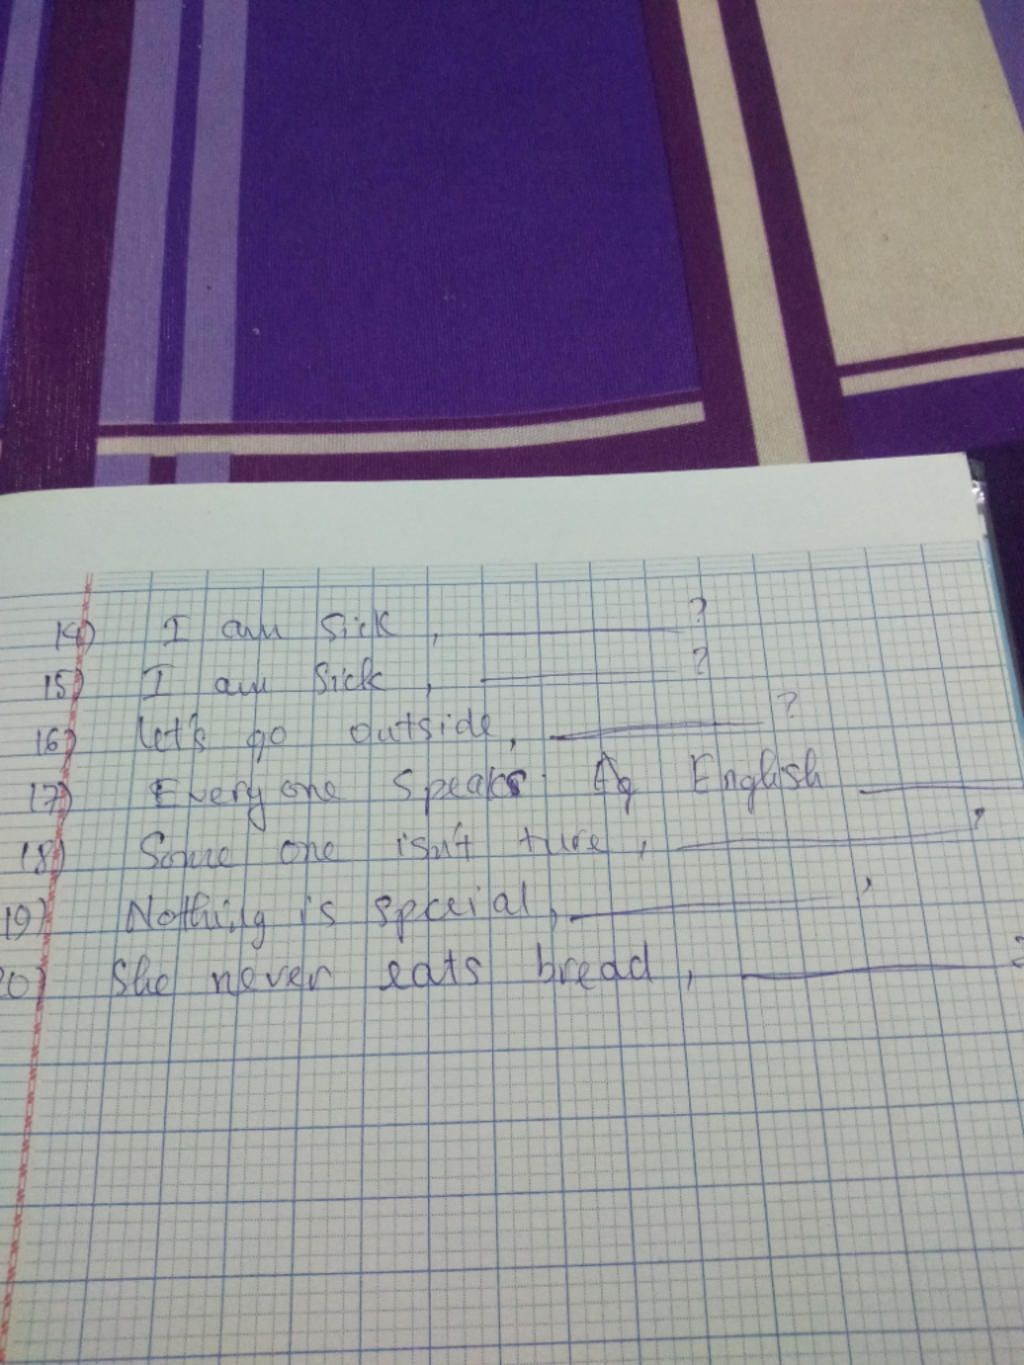 14) I am Sick, ________?
15) I am Sick, ________?
16) Let's go outside, ________?
17) Every one Speaks English ________
18) Some one isn't ture, ________?
19) Nothing is speeial, ________,
20) She never eats bread, ________?